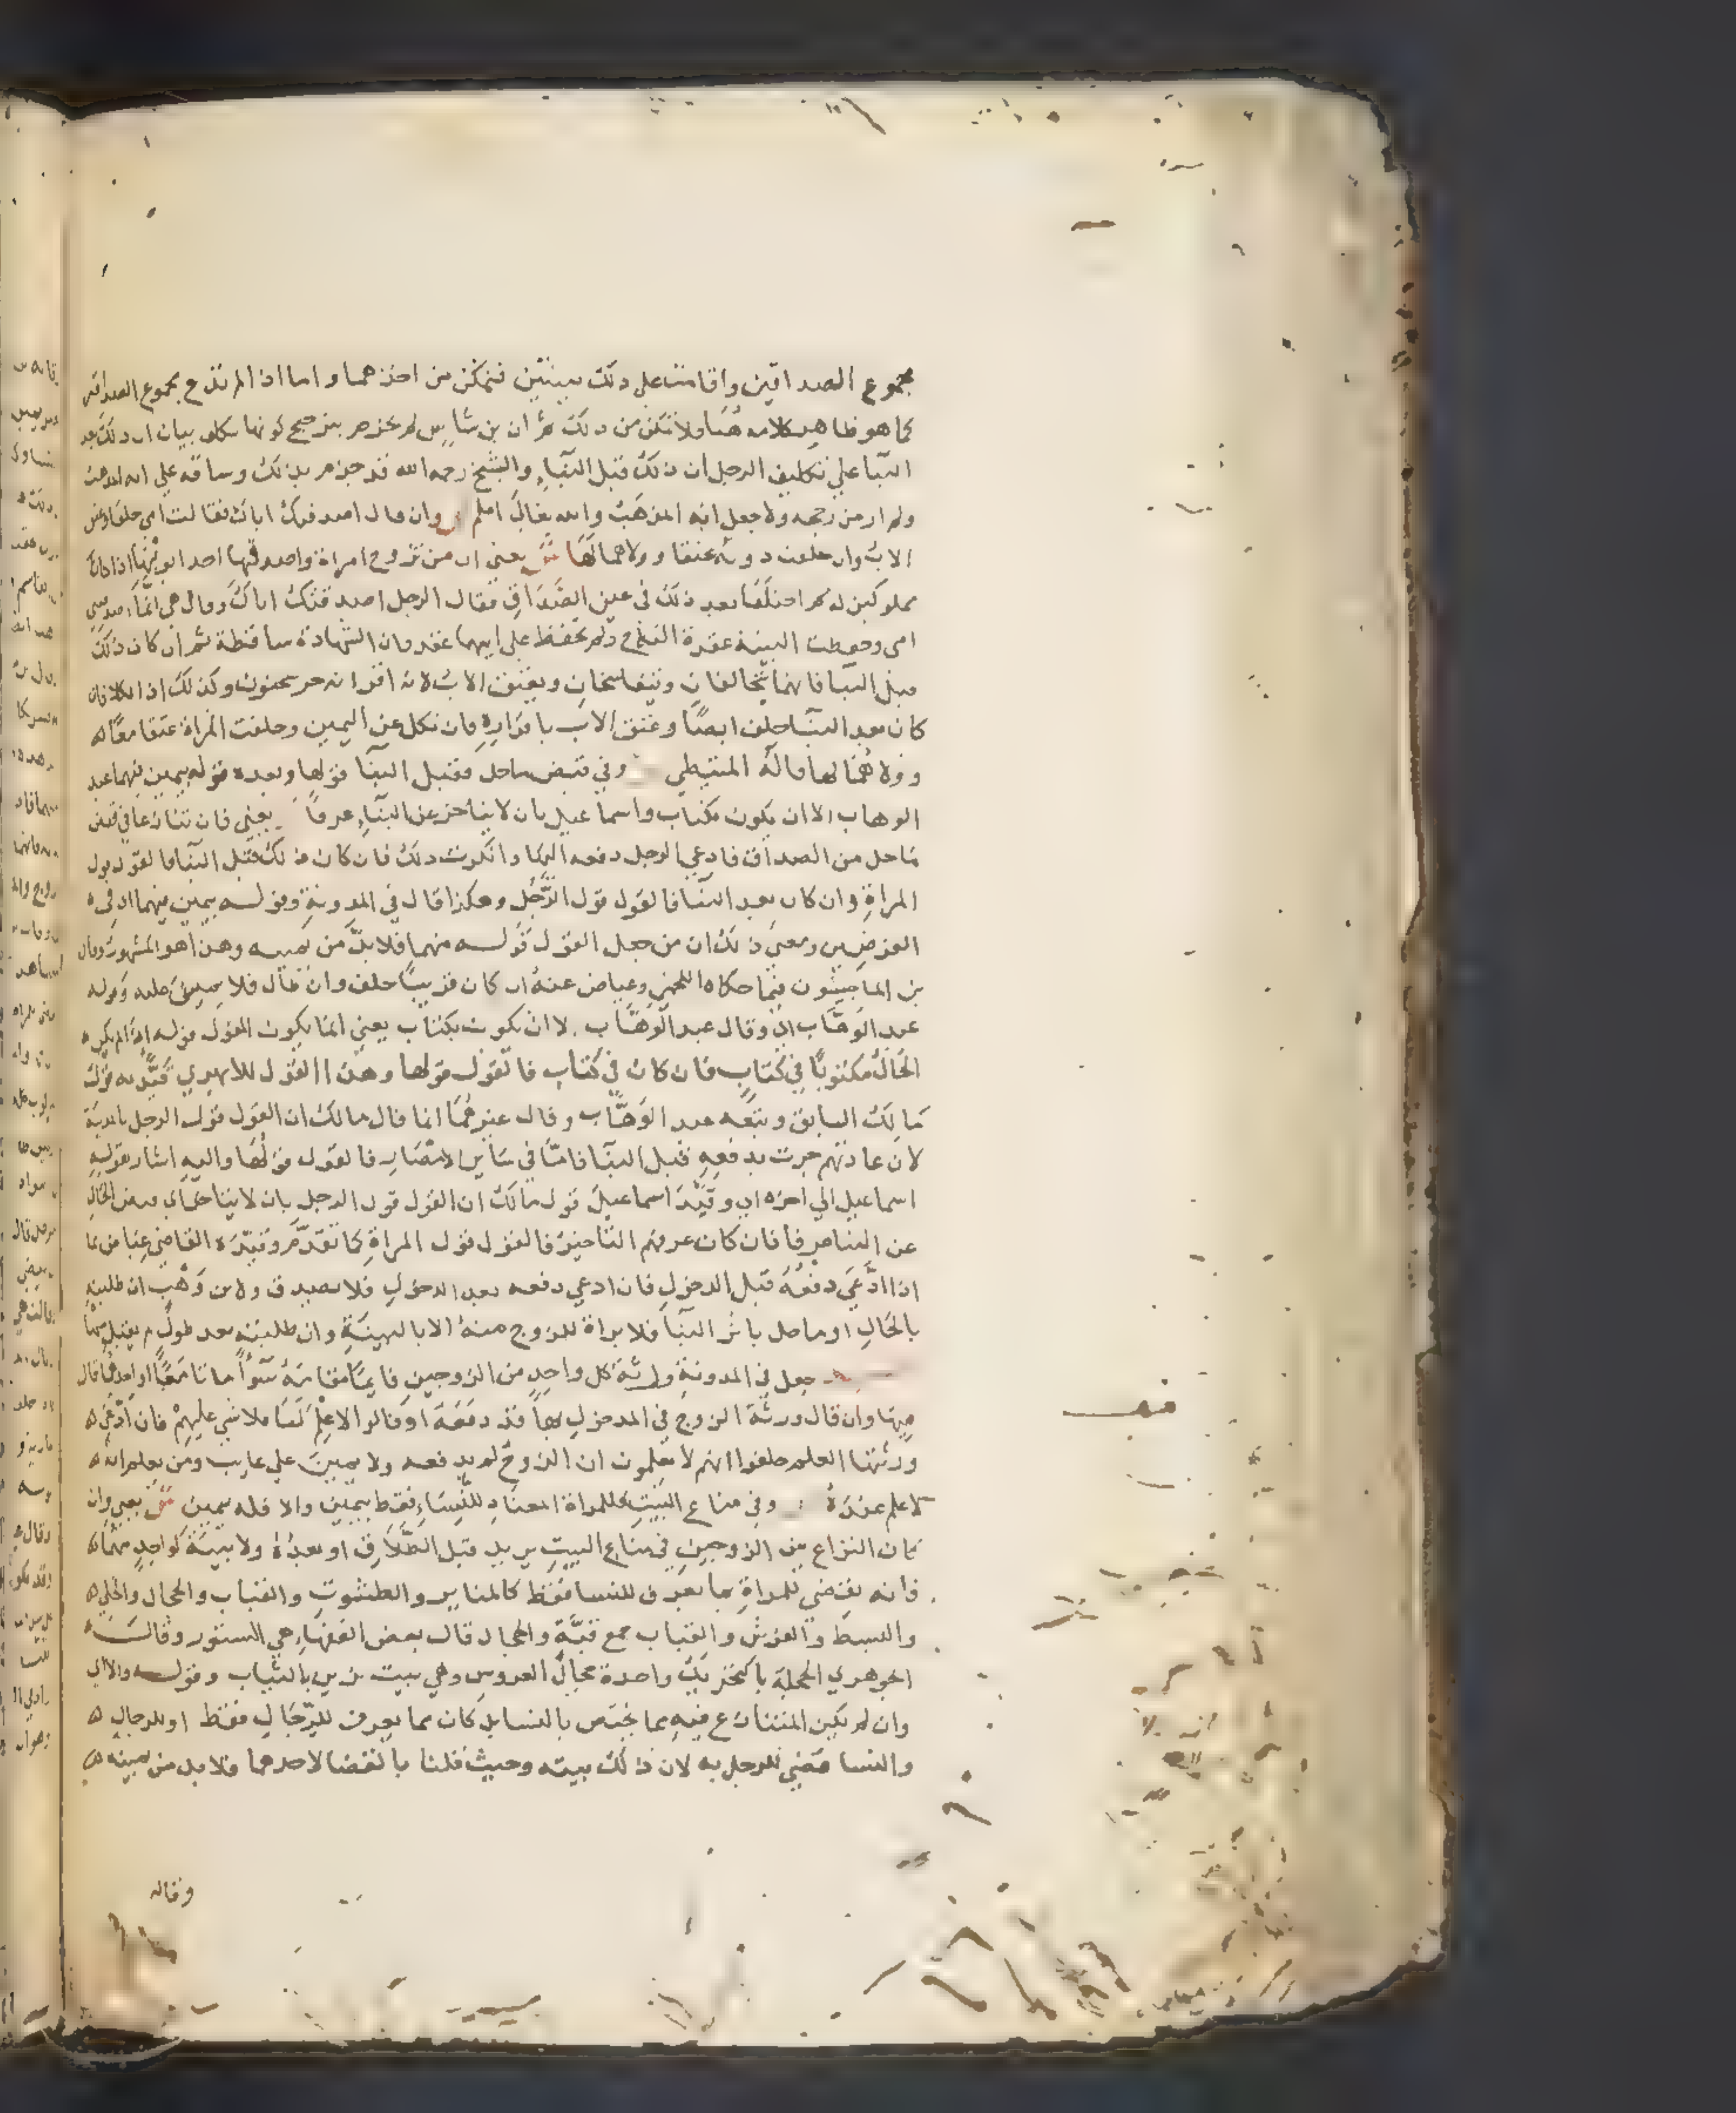 مجموع الصداقين واقامت على ذلك ببينتين فتمكن من اخذهما واما اذا لم تدع مجموع الصداقين
كما هو ظاهر كلامه هنا فلا تمكن من ذلك ثم ان بن شاس لم يجزم بترجيح كونها تكلف بيان ان ذلك بعد
البنا على تكليف الرجل ان ذلك قبل البناء والشيخ رحمه الله قد جزم بذلك وساقه على انه المذهب
ولم ار من رجحه ولا جعل انه المذهب والله تعالى اعلم وان قال اصدقتك اباك فقالت امي حلفا وعتق
الاب وان حلفت دونه عتقا وولاهما لها ش يعني ان من تزوج امراة واصدقها احد ابويها اذا كانا
مملوكين له ثم اختلفا بعد ذلك في عين الصداق فقال الرجل اصدقتك اباك وقال هي انما اصدقتني
امي وحفظت البينة عقدة النكاح ولم تحفظ على ايهما عقد فان الشهادة ساقطة ثم ان كان ذلك
قبل البنا فانهما يتحالفان ويتفاسخان ويعتق الاب لانه اقر انه حر سحنون وكذلك اذا نكلا فان
كان بعد البنا حلف ايضا وعتق الاب باقراره فان نكل عن اليمين وحلفت المراة عتقا معا له
وولاهما لها قاله المتيطي وفي قبض ماحل فقبل البنا قولها وبعده قوله بيمين فيهما عبد
الوهاب الا ان يكون بكتاب واسماعيل بان لا يتاخر عن البناء عرفا يعني فان تنازعا في قبض
ماحل من الصداق فادعى الرجل دفعه اليها وانكرت ذلك فان كان ذلك قبل البنا فالقول قول
المراة وان كان بعد البنا فالقول قول الرجل وهكذا قال في المدونة وقوله بيمين فيهما اي في
الفرضين ومعنى ذلك ان من جعل القول قوله منهما فلا بد من يمينه وهذا هو المشهور وقال
بن الماجشون فيما حكاه اللخمي وعياض عنه ان كان قريبا حلف وان طال فلا يمين عليه وقوله
عبد الوهاب اي وقال عبد الوهاب الا ان يكون بكتاب يعني انما يكون القول قوله اذا لم يكن
الحال مكتوبا في كتاب فان كان في كتاب فالقول قولها وهذا القول للابهري قيد به قول
مالك السابق وتبعه عبد الوهاب وقال غيرهما انما قال مالك ان القول قول الرجل بالمدينة
لان عادتهم جرت بدفعه قبل البنا فاما في ساير الامصار فالقول قولها واليه اشار بقوله
اسماعيل الى اخره اي وقيد اسماعيل قول مالك ان القول قول الرجل بان لا يتاخر قبض الحال
عن البنا عرفا فان كان عرفهم التاخير فالقول قول المراة كما تقدم وقيده القاضي عياض بما
اذا ادعى دفعه قبل الدخول فان ادعى دفعه بعد الدخول فلا يصدق ولابن وهب ان طلبته
بالحال او ماحل باثر البنا فلا براة للزوج منه الا بالبينة وان طلبته بعد طول لم يقبل منها
جعل في المدونة ورثة كل واحد من الزوجين قايما مقامه سوا ماتا معا او احدهما قال
فيها وان قال ورثة الزوج في المدخول بها قد دفعه او قالوا لا علم لنا فلا شي عليهم فان ادعى
ورثتها العلم حلفوا انهم لا يعلمون ان الزوج لم يدفعه ولا يمين على غايب ومن يعلم انه
لا علم عنده وفي متاع البيت فللمراة المعتاد للنساء فقط بيمين والا فله بيمين ش يعني وان
كان النزاع بين الزوجين في متاع البيت يريد قبل الطلاق او بعده ولا بينة لواحد منهما
فانه يقضي للمراة بما يعرف للنسا فقط كالمناير والطشوت والقباب والحجال والحلي
والبسط والفرش والقباب جمع قبة والحجال قال بعض الفقهاء هي الستور وقال
الجوهري الحجلة بالتحريك واحدة حجال العروس وهي بيت يزين بالثياب وقوله والا اي
وان لم يكن المتنازع فيه مما يختص بالنسا بل كان مما يعرف للرجال فقط او للرجال
والنسا قضي للرجل به لان ذلك بيته وحيث قلنا بالقضا لاحدهما فلا بد من يمينه
وقاله